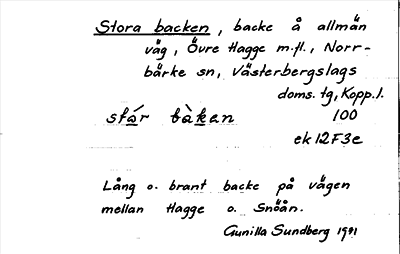 Stora backen, backe å allmän
väg, Övre Hagge m.fl., Norr-
bärke sn, Västerbergslags
doms. tg, Kopp. l.
stár bàken 100
ek 12F3e
Lång o. brant backe på vägen
mellan Hagge o. Snöån.
Gunilla Sundberg 1991